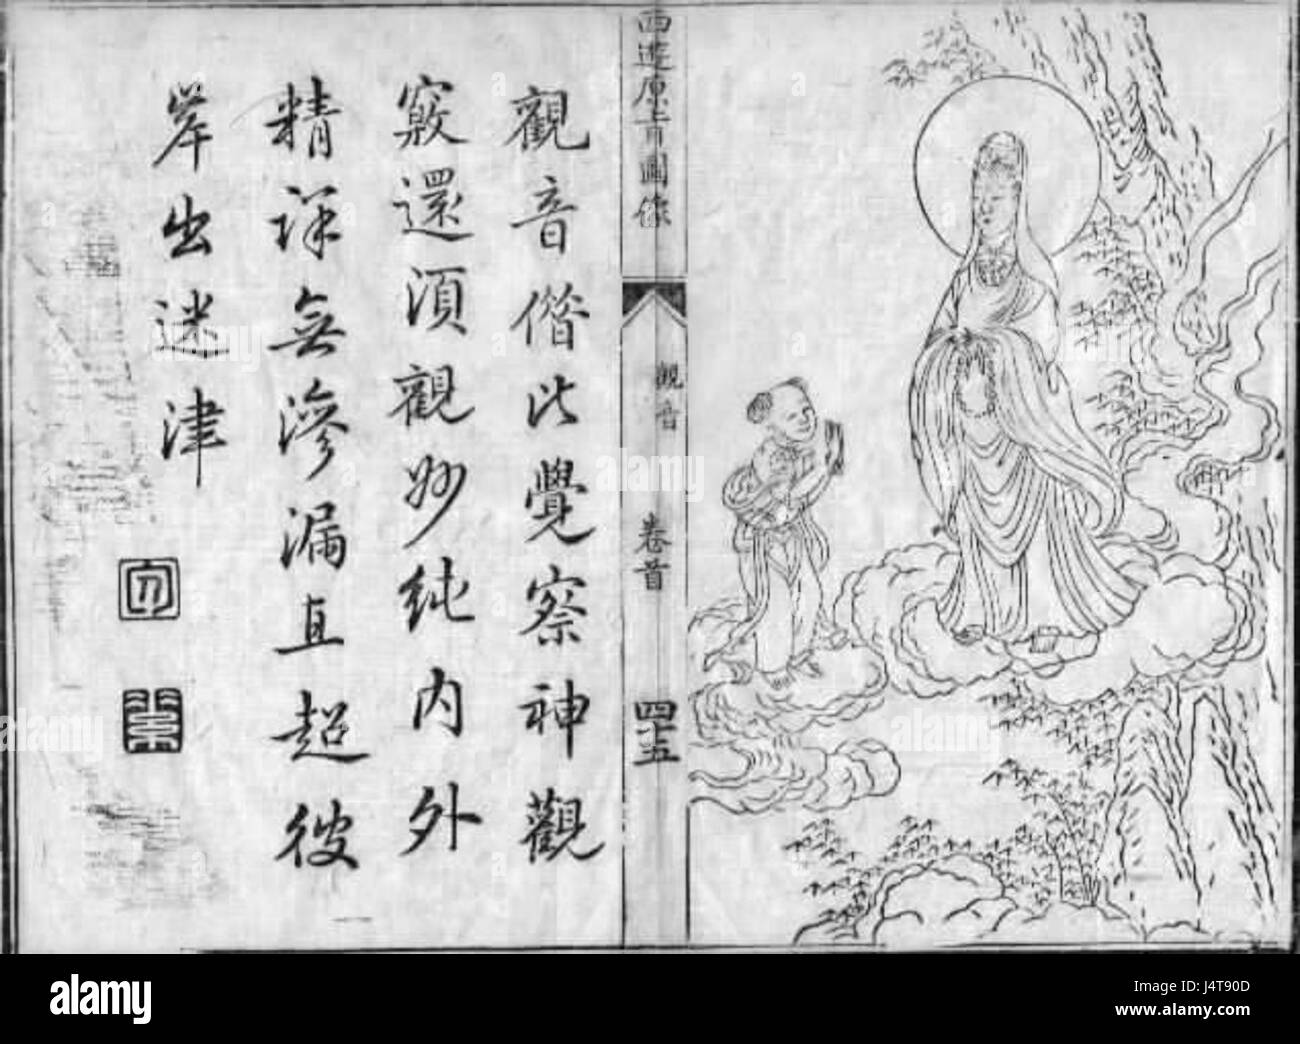 西遊原旨圖像
觀音
卷首
四十五
觀音僭此覺察神觀
竅還須觀妙純內外
精詳無滲漏直超彼
岸出迷津
alamy
Image ID: J4T90D
www.alamy.com